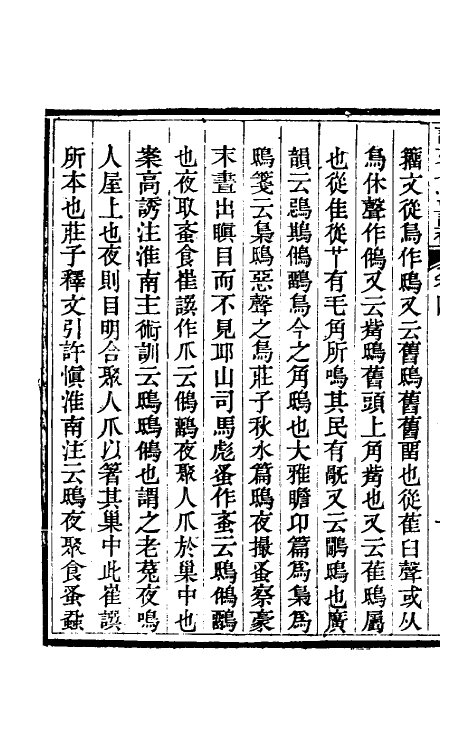 籀文從鳥作鴟又云舊鴟舊舊畱也從萑臼聲或从
鳥休聲作鵂又云觜鴟舊頭上角觜也又云萑鴟屬
也從隹從𦫳有毛角所鳴其民有旤又云鸋鴟也廣
韻云鵋鶀鵂鶹鳥今之角鴟也大雅瞻卬篇爲梟爲
鴟箋云梟鴟惡聲之鳥莊子秋水篇鴟夜撮蚤察豪
末晝出瞋目而不見邱山司馬彪蚤作蚉云鴟鵂鶹
也夜取蚉食崔譔作爪云鵂鶹夜聚人爪於巢中也
案高誘注淮南主術訓云鴟鴟鵂也謂之老菟夜鳴
人屋上也夜則目明合聚人爪以箸其巢中此崔譔
所本也莊子釋文引許愼淮南注云鴟夜聚食蚤蝨